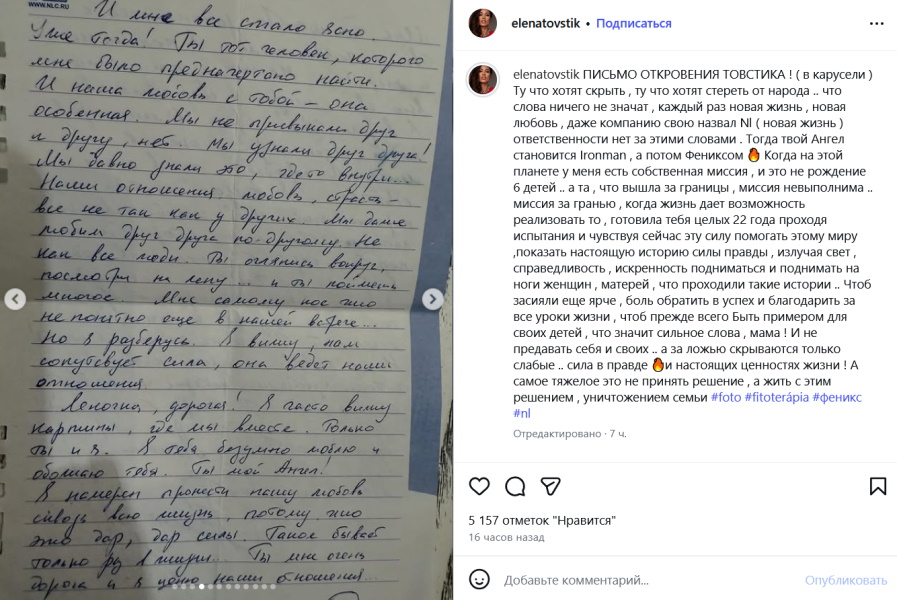 WWW.NLC.RU
И мне все стало ясно.
Уже тогда! Ты тот человек, которого
мне было предначертано найти.
И наша любовь с тобой – она
особенная. Мы не привыкали друг
к другу, нет. Мы узнали друг друга!
Мы давно знали это, где-то внутри...
Наши отношения, любовь, страсть –
все не так как у других. Мы даже
любим друг друга по-другому. Не
как все люди. Ты оглянись вокруг,
посмотри на луну... и ты поймешь
многое. Мне самому пос что
не понятно еще в нашей встрече...
Но я разберусь. Я вижу, нам
сопутсвует сила, она ведет наши
отношения.
Леночка, дорогая! Я часто вижу
картины, где мы вместе. Только
ты и я. Я тебя безумно люблю и
обожаю тебя. Ты мой Ангел!
Я намерен пронести нашу любовь
сквозь всю жизнь, потому что
это дар, дар силы. Такое бывает
только раз в жизни. Ты мне очень
дорога и я ценю наши отношения...
elenatovstik • Подписаться
elenatovstik ПИСЬМО ОТКРОВЕНИЯ ТОВСТИКА ! ( в карусели )
Ту что хотят скрыть , ту что хотят стереть от народа .. что
слова ничего не значат , каждый раз новая жизнь , новая
любовь , даже компанию свою назвал Nl ( новая жизнь )
ответственности нет за этими словами . Тогда твой Ангел
становится Ironman , а потом Фениксом 🔥 Когда на этой
планете у меня есть собственная миссия , и это не рождение
6 детей .. а та , что вышла за границы , миссия невыполнима ..
миссия за гранью , когда жизнь дает возможность
реализовать то , готовила тебя целых 22 года проходя
испытания и чувствуя сейчас эту силу помогать этому миру
,показать настоящую историю силы правды , излучая свет ,
справедливость , искренность подниматься и поднимать на
ноги женщин , матерей , что проходили такие истории .. Чтоб
засияли еще ярче , боль обратить в успех и благодарить за
все уроки жизни , чтоб прежде всего Быть примером для
своих детей , что значит сильное слова , мама ! И не
предавать себя и своих .. а за ложью скрываются только
слабые .. сила в правде 🔥и настоящих ценностях жизни ! А
самое тяжелое это не принять решение , а жить с этим
решением , уничтожением семьи #foto #fitoterápia #феникс
#nl
Отредактировано · 7 ч.
5 157 отметок "Нравится"
16 часов назад
Добавьте комментарий...
Опубликовать